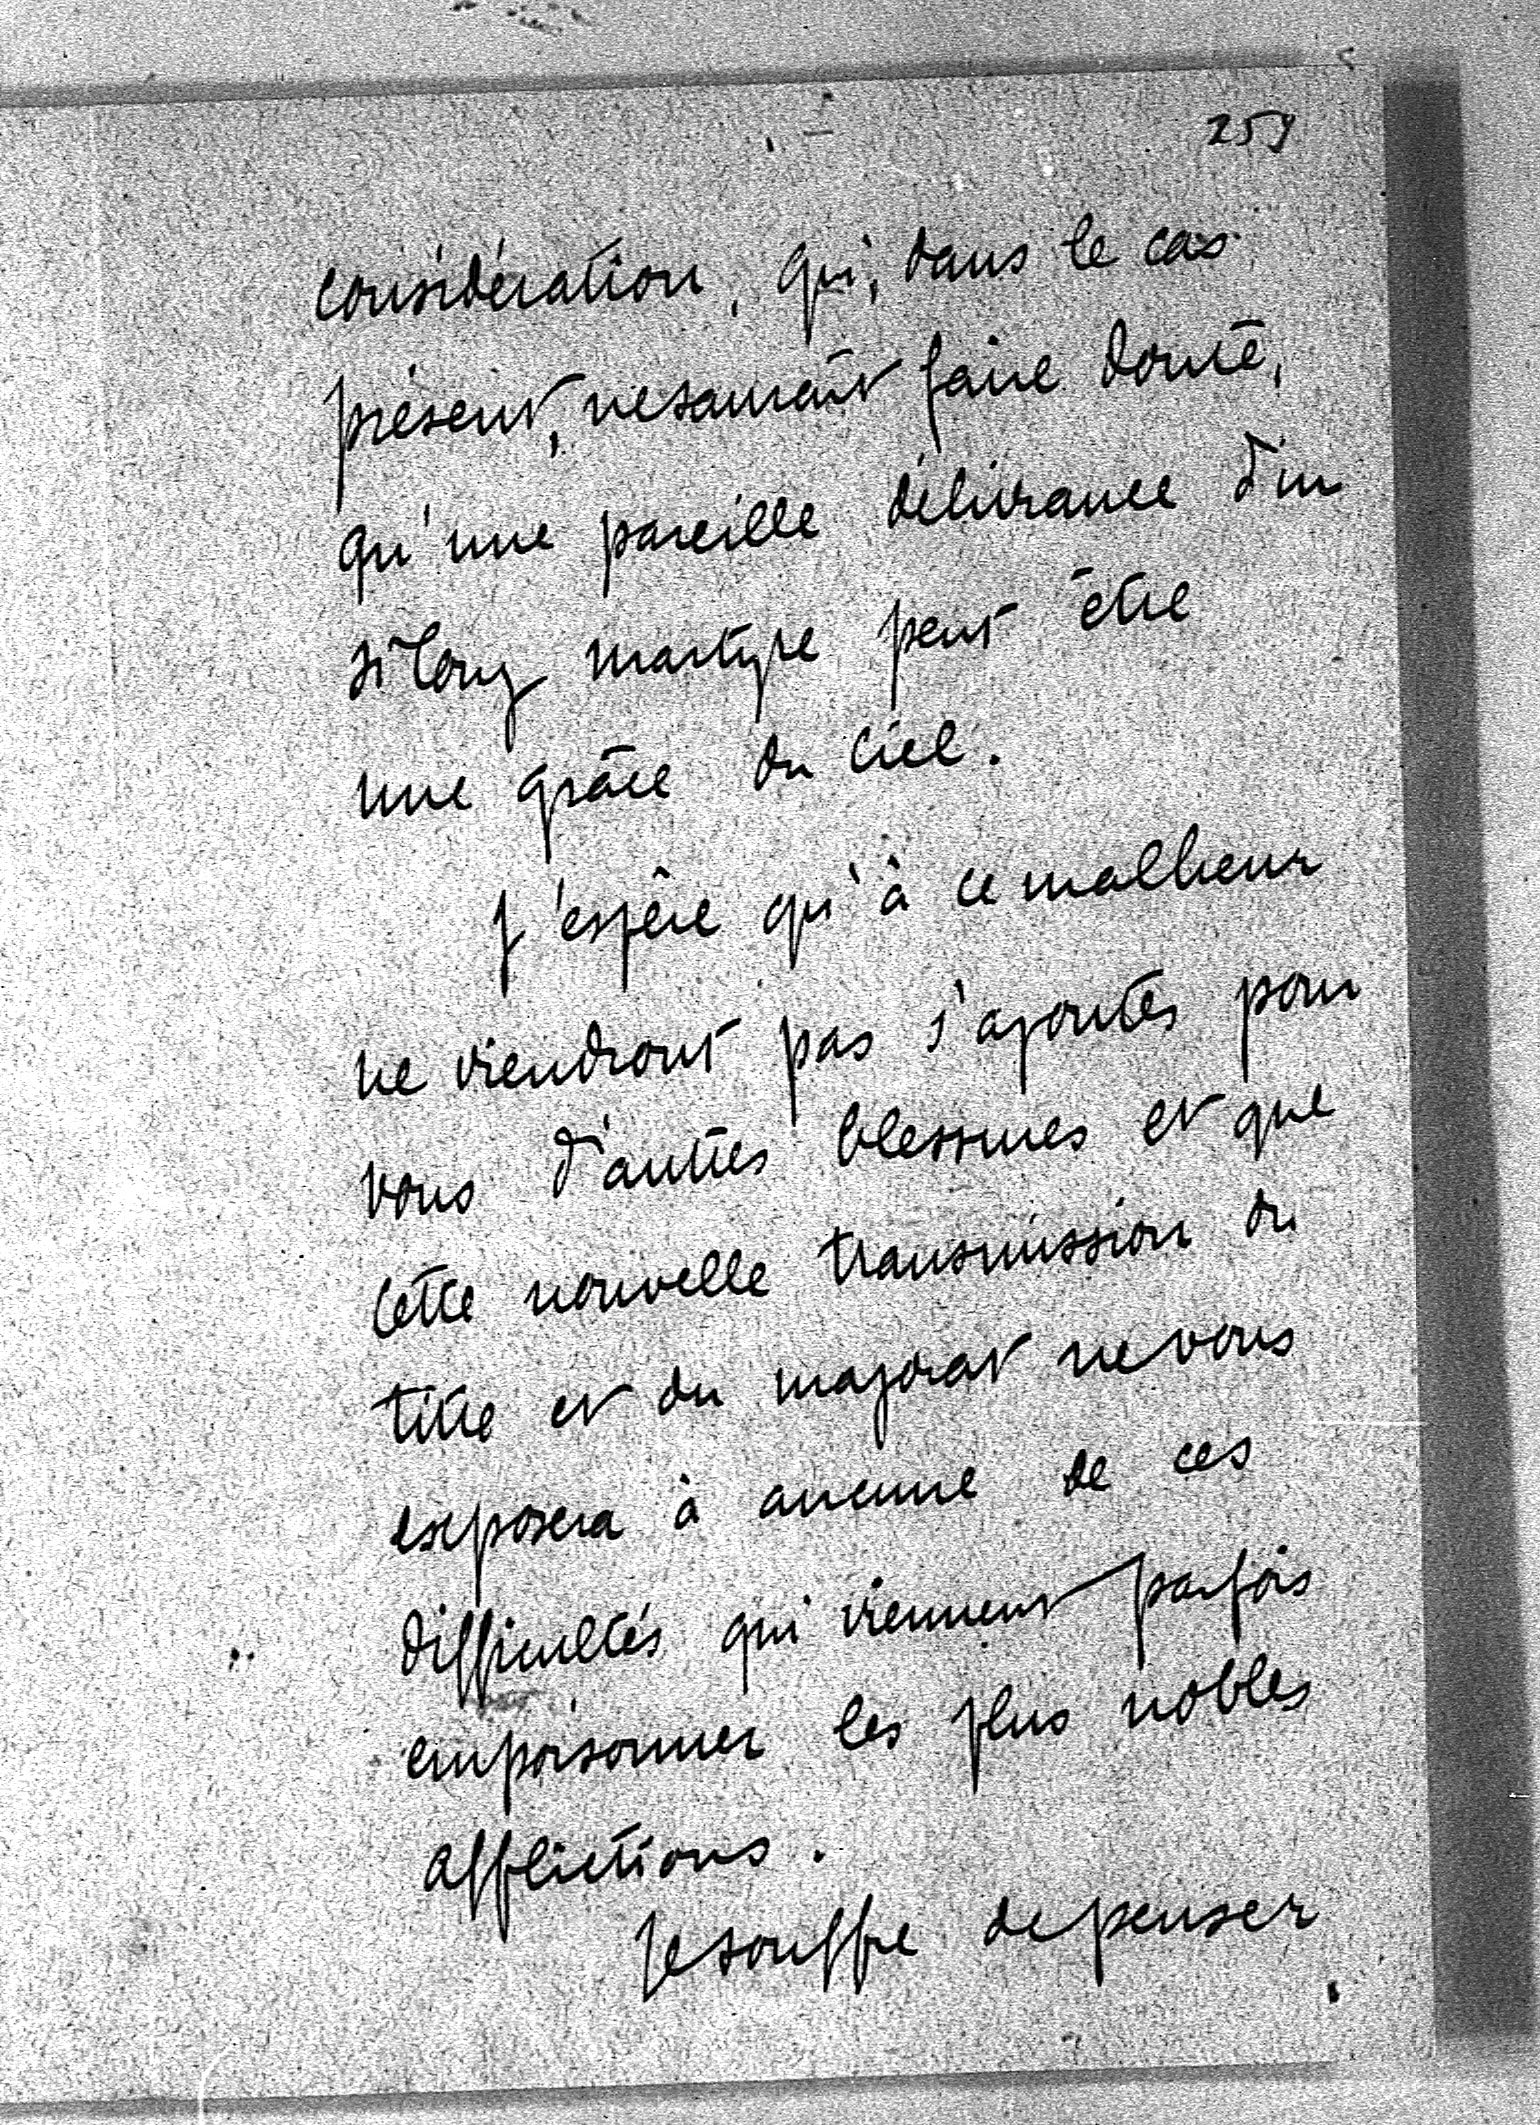 259
considération, qui, dans le cas
présent, ne saurait faire doute,
qu'une pareille délivrance d'un
si long martyre peut être
une grâce du ciel.
J'espère qu'à ce malheur
ne viendront pas s'ajouter pour
vous d'autres blessures et que
cette nouvelle transmission du
titre et du majorat ne vous
exposera à aucune de ces
difficultés qui viennent parfois
empoisonner les plus nobles
afflictions.
Je souffre de penser